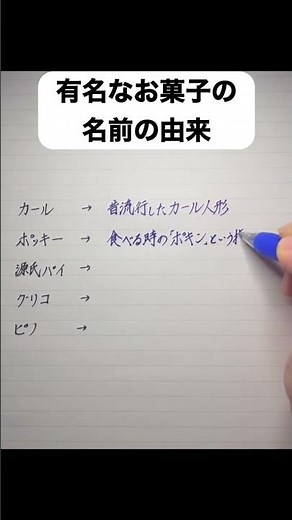 有名なお菓子の
名前の由来
カール → 昔流行したカール人形
ポッキー → 食べる時の「ポキン」という
源氏パイ →
グリコ →
ピノ →